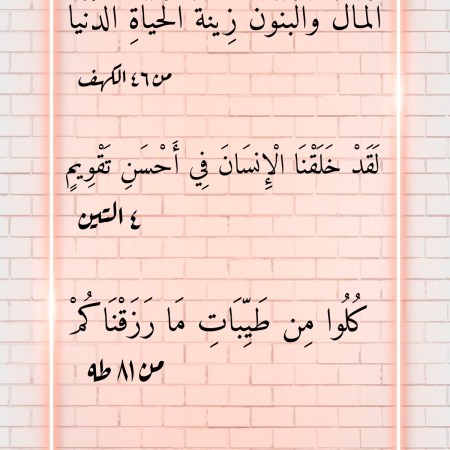 المال والبنون زِينَةُ الحَيَاةِ الدُّنْيَا
من ٤٦ الكهف
لَقَدْ خَلَقْنَا الْإِنسَانَ فِي أَحْسَنِ تَقْوِيمٍ
٤ التين
كُلُوا مِن طَيِّبَاتِ مَا رَزَقْنَاكُمْ
من ٨١ طه